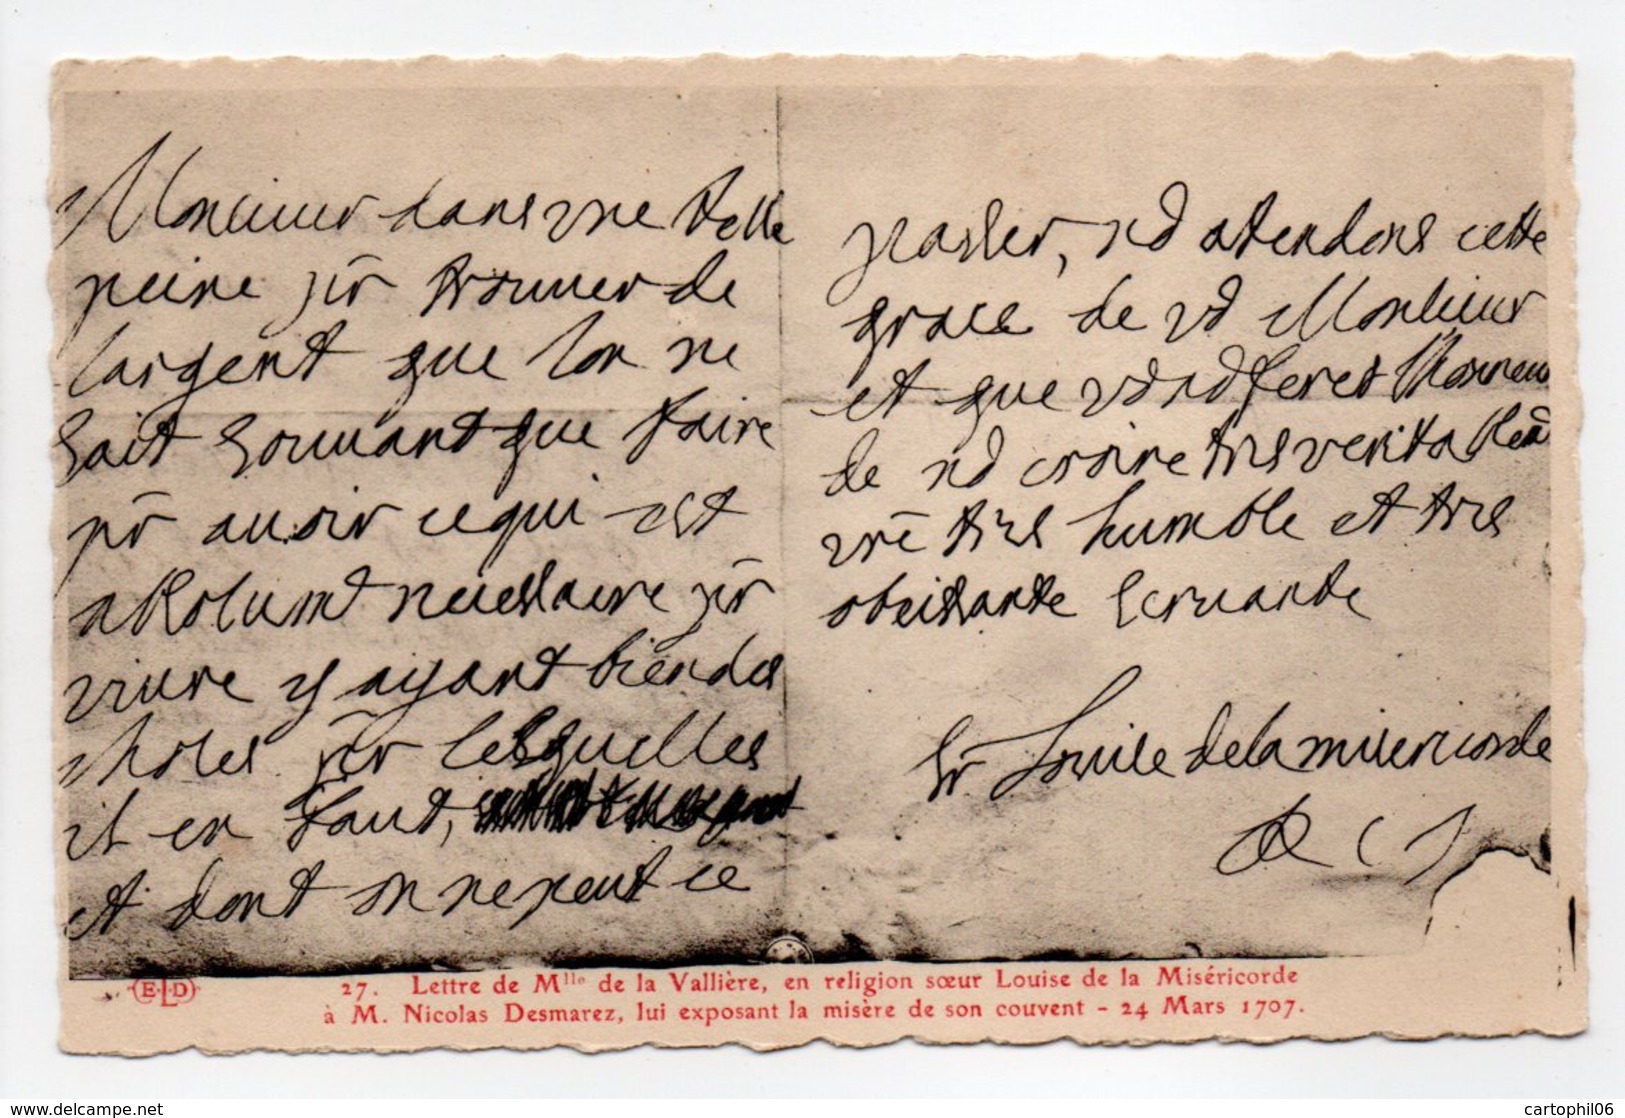 Monsieur dans vne telle
peine pr trouuer de
largent que lon ne
sait souuant que faire
pr auoir ce qui est
absolumt necessaire pr
viure y ayant bien des
choses pr lesquelles
il en faut,
et dont on ne peut ce
passer, nd atendons cette
grace de vd Monsieur
et que vd nd feres
de nd croire tres veritablemt
vre tres humble et tres
obeissante seruante
Sr Louise de la misericorde
R C J
E.L.D
27. Lettre de Mlle de la Vallière, en religion sœur Louise de la Miséricorde
à M. Nicolas Desmarez, lui exposant la misère de son couvent - 24 Mars 1707.
delcampe.net
cartophil06